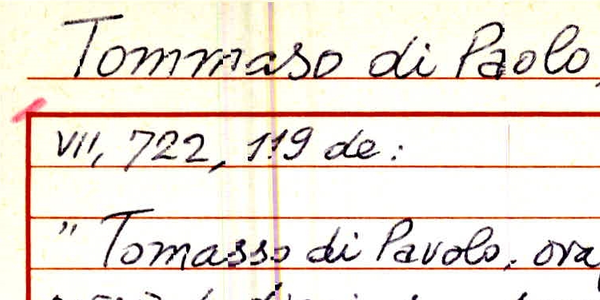 Tommaso di Paolo,
VII, 722, 119 de:
" Tomasso di Pavolo, ora